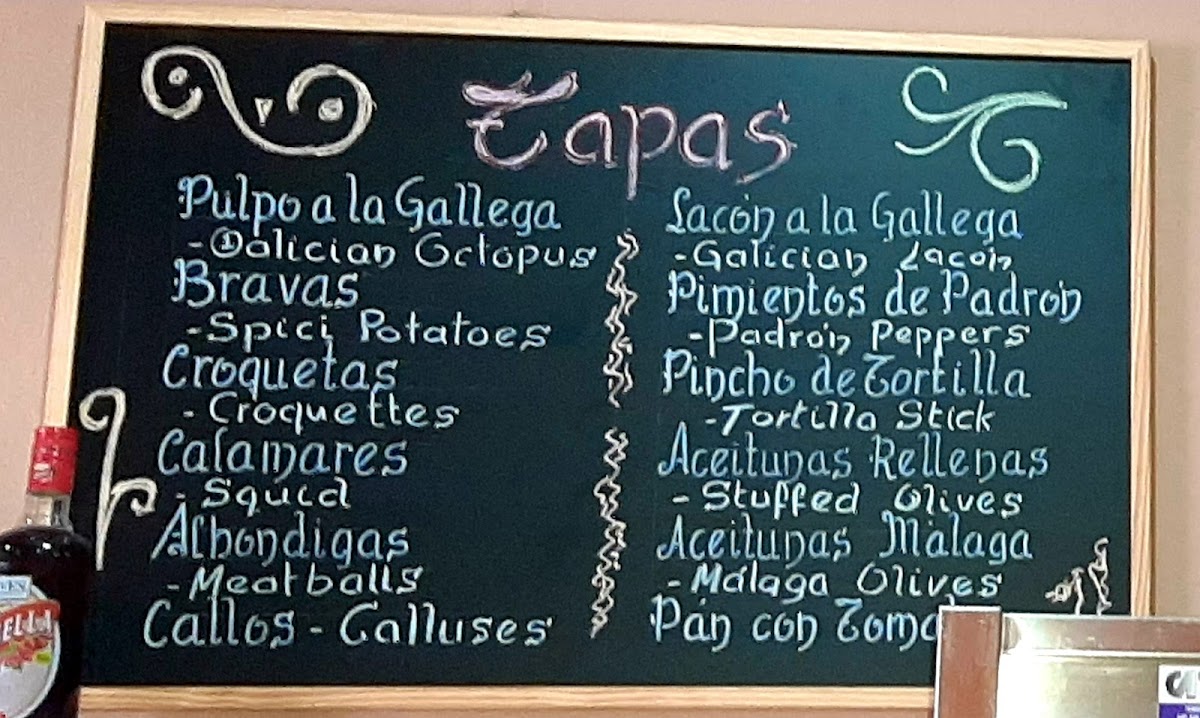 Tapas
Pulpo a la Gallega
-Galician Octopus
Bravas
-Spici Potatoes
Croquetas
- Croquettes
Calamares
- Squid
Albondigas
- Meatballs
Callos - Calluses
Lacón a la Gallega
-Galician Lacón
Pimientos de Padrón
-Padrón Peppers
Pincho de Tortilla
-Tortilla Stick
Aceitunas Rellenas
- Stuffed Olives
Aceitunas Málaga
- Málaga Olives
Pán cón
ELLA